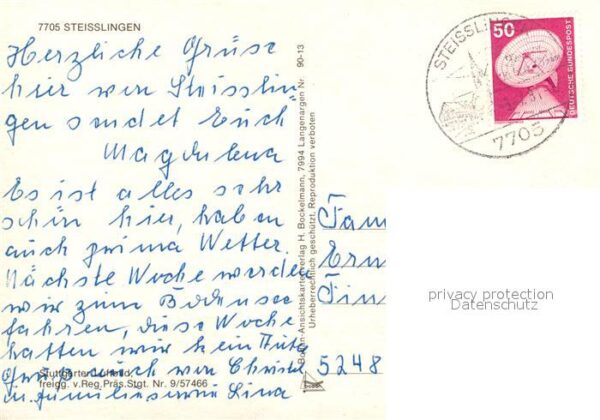 7705 STEISSLINGEN
Herzliche Grüse
hier von Steisslin
gen sendet Euch
Magdalena
Es ist alles sehr
schön hier, haben
auch prima Wetter.
Nächste Woche werden
wir zum Bodensee
fahren, diese Woche
hatten wir kein Auto
Gruß auch von Christel
u. Familie sowie Lina
Stuttgarter Luftbild
freigg. v. Reg. Präs. Stgt. Nr. 9/57466
90-13
Boden-Ansichtskartenverlag H. Bockelmann, 7994 Langenargen Nr.
Urheberrechtlich geschützt, Reproduktion verboten
STEISSLINGEN
7705
50
DEUTSCHE BUNDESPOST
Fam
5248
privacy protection
Datenschutz